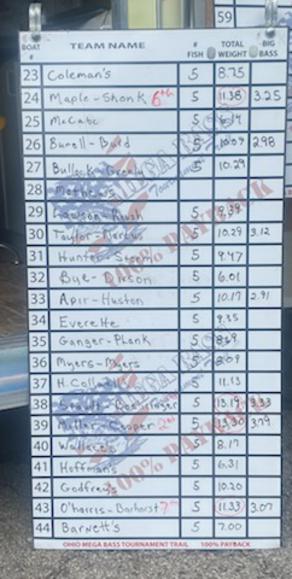 59
BOAT # TEAM NAME # FISH TOTAL WEIGHT BIG BASS
23 Coleman's 5 8.75
24 Maple-Shonk 6th 5 11.38 3.25
25 McCabe 5
26 5 10.09 2.98
27 5 10.29
28
29 5
30 Taylor- 5 10.29 3.12
31 Hunter- 5 9.47
32 Bye- 5 6.01
33 Apir-Huston 5 10.17 2.91
34 Everette 5 9.35
35 Ganger-Plank 5
36 Myers-Myers 5 8.09
37 5 11.13
38 5 13.19 3.33
39 Miller-Cooper 2nd 5 13.30 3.79
40 Wallace's 5 8.17
41 Hoffman's 5 6.31
42 Godfrey's 5 10.20
43 O'harris-Barhorst 7th 5 11.33 3.07
44 Barnett's 5 7.00
OHIO MEGA BASS TOURNAMENT TRAIL 100% PAYBACK